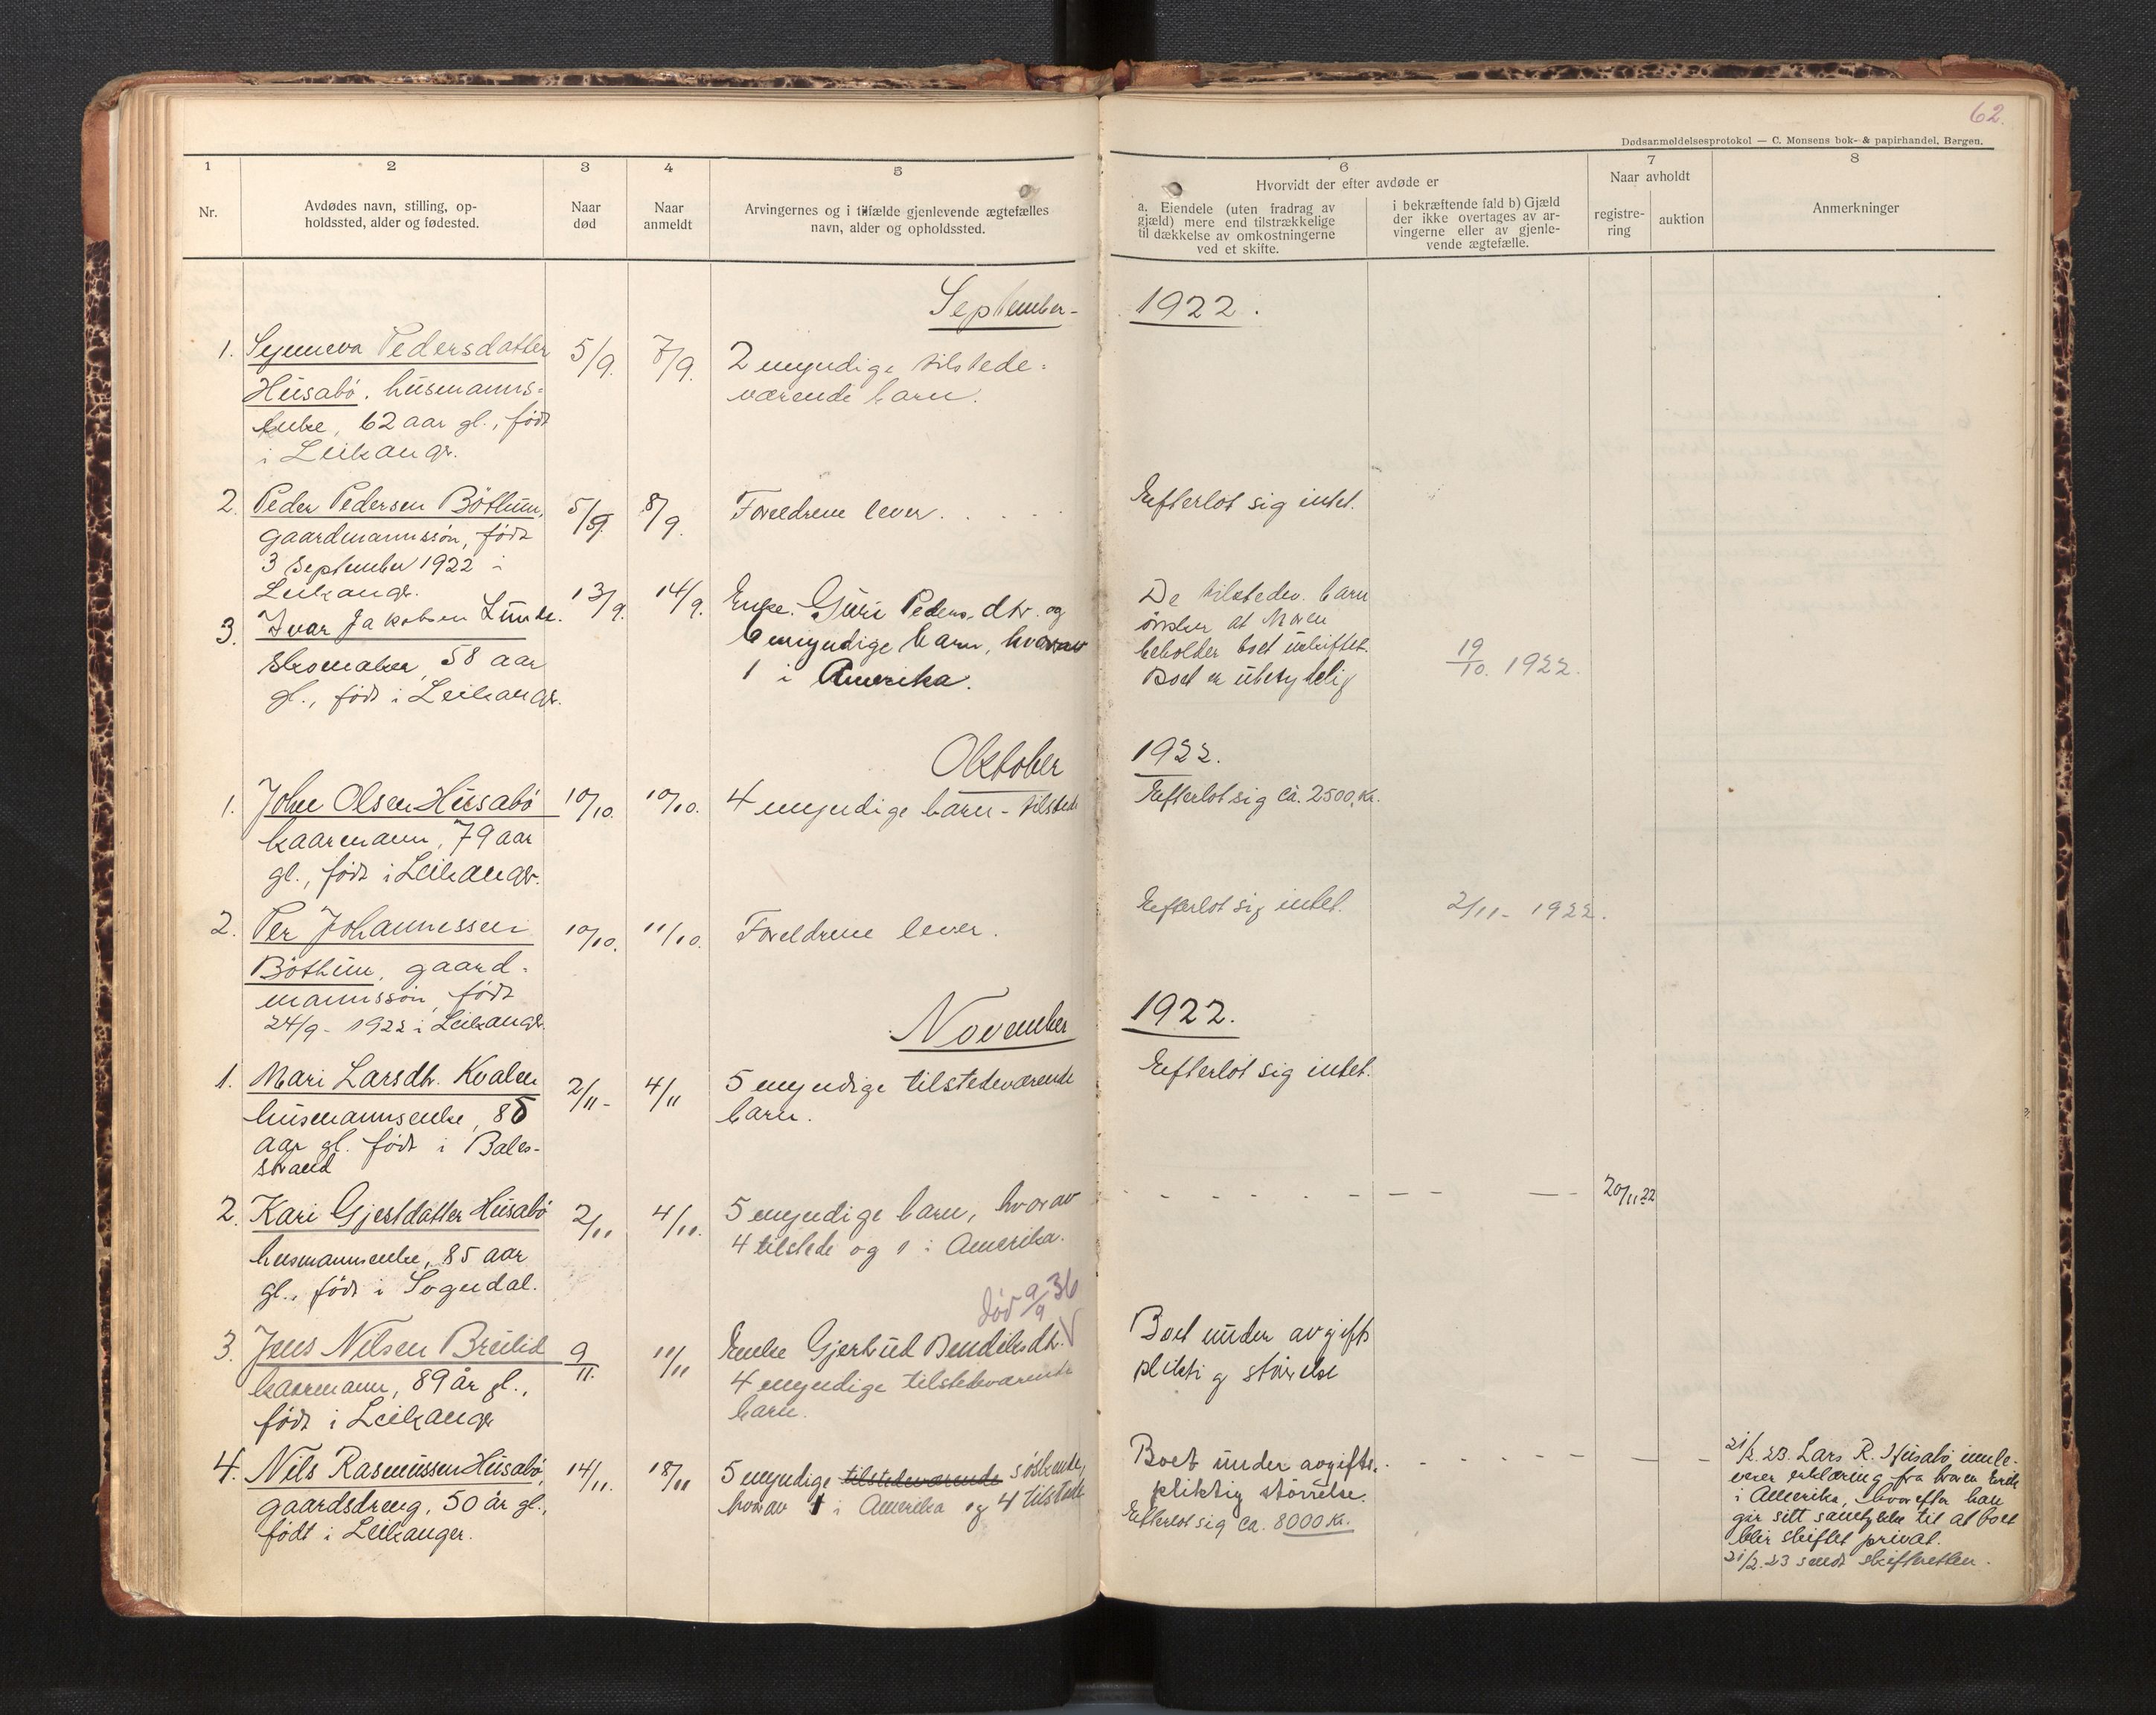 62.
Dødsanmeldelsesprotokol — C. Monsens bok- & papirhandel, Bergen.
1
2
3
4
5
6
7
8
Nr.
Avdødes navn, stilling, op-
holdssted, alder og fødested.
Naar
død
Naar
anmeldt
Arvingernes og i tilfælde gjenlevende ægtefælles
navn, alder og opholdssted.
Hvorvidt der efter avdøde er
a. Eiendele (uten fradrag av
gjæld) mere end tilstrækkelige
til dækkelse av omkostningerne
ved et skifte.
i bekræftende fald b) Gjæld
der ikke overtages av ar-
vingerne eller av gjenle-
vende ægtefælle.
Naar avholdt
registre-
ring
auktion
Anmerkninger
September - 1922.
1. Synneva Pedersdatter
Husabö, husmanns-
enke, 62 aar gl., født
i Leikangr.
5/9. 7/9.
2 myndige tilstede-
værende barn.
2. Peder Pedersen Böthun,
gaardmannssön, født
3 September 1922 i
Leikangr.
5/9. 8/9.
Foreldrene lever.
Efterlot sig intet.
3. Ivar Jakobsen Lunde.
skomaker, 58 aar
gl., født i Leikangr.
13/9. 14/9.
Enke. Guri Peders.dtr. og
6 myndige barn, hvorav
1 i Amerika.
De tilstedev. barn
önsker at moren
beholder boet uskiftet.
Boet er ubetydelig
19/10. 1922.
Oktober 1922.
1. John Olsen Husabö
kaarmann, 79 aar
gl., født i Leikangr.
10/10. 10/10.
4 myndige barn - tilstede
Efterlot sig ca. 2500 Kr.
2. Per Johannessen
Böthun, gaard-
mannssön, født
24/9 - 1922 i Leikangr.
10/10. 11/10.
Foreldrene lever.
Efterlot sig intet.
2/11 - 1922.
November 1922.
1. Mari Larsdtr. Kvalen
husmannsenke, 85
aar gl. født i Bale-
strand
2/11 - 4/11
5 myndige tilstedeværende
barn.
Efterlot sig intet.
2. Kari Gjestdatter Husabö
husmannsenke, 85 aar
gl., født i Sogndal.
2/11 4/11.
5 myndige barn, hvorav
4 tilstede og 1 i Amerika.
20/11 22
3. Jens Nilsen Breilid
kaarmann, 89 år gl.,
født i Leikangr
9/11. 11/11
død 9/9 36
Enke Gjertrud Bendiksdtr. V
4 myndige tilstedeværende
barn.
Boet under avgifts
pliktig störrelse
4. Nils Rasmussen Husabö,
gaardsdreng, 50 år gl.,
født i Leikanger.
14/11. 18/11
5 myndige tilstedeværende söskende,
hvorav 1 i Amerika og 4 tilstede
Boet under avgifts-
pliktig störrelse.
Efterlot sig ca. 8000 Kr.
21/2. 23. Lars R. Husabö innle-
verer erklæring fra broren Erik
i Amerika, hvorefter han
gir sitt samtykke til at boet
blir skiftet privat.
21/2. 23 sendt skifteretten.